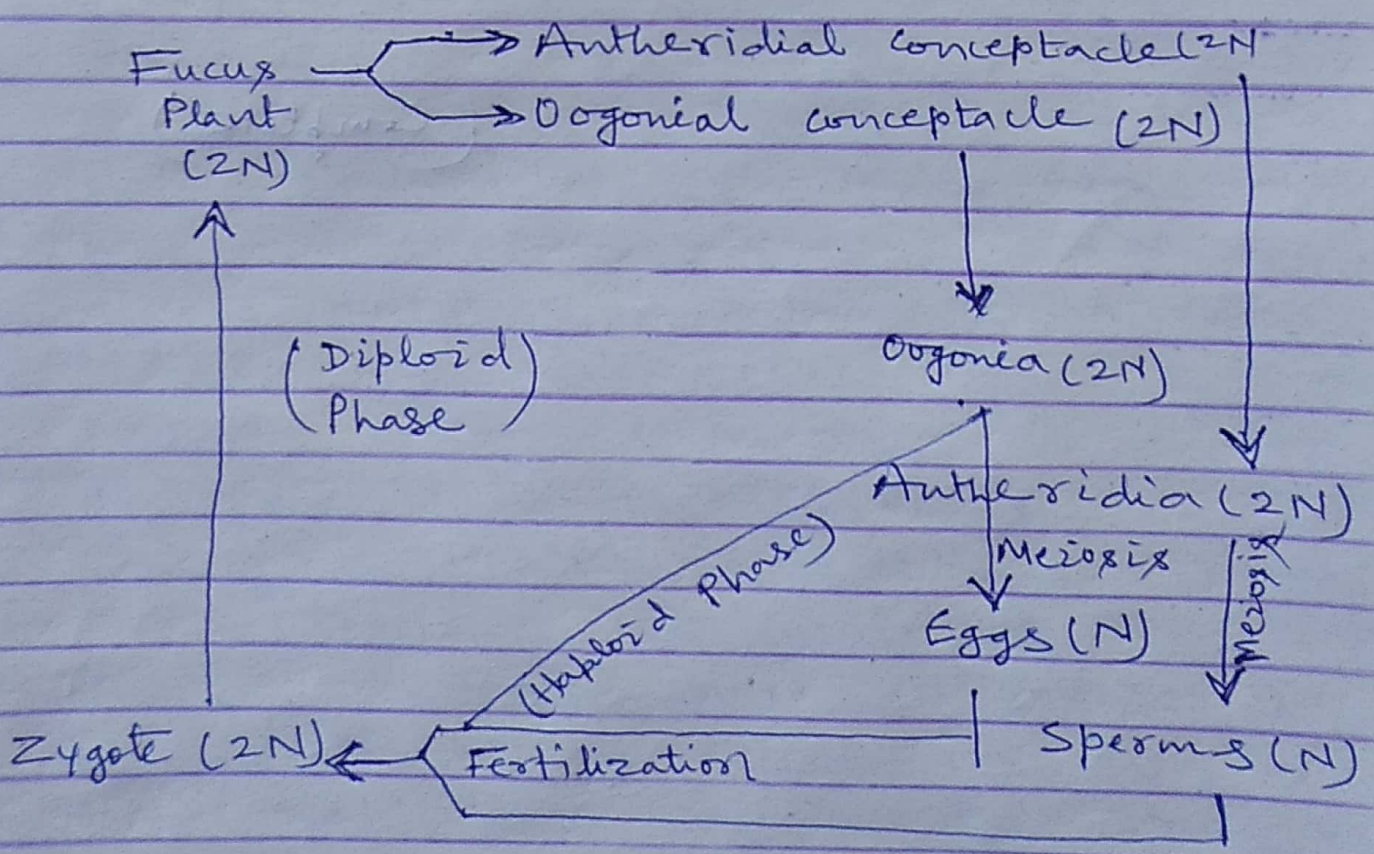 Fucus
Plant
(2N)
Antheridial conceptacle (2N
Oogonial conceptacle (2N)
(Diploid
Phase)
Oogonia (2N)
Antheridia (2N)
Meiosis
Meiosis
(Haploid Phase)
Eggs (N)
Zygote (2N)
Fertilization
Sperms (N)